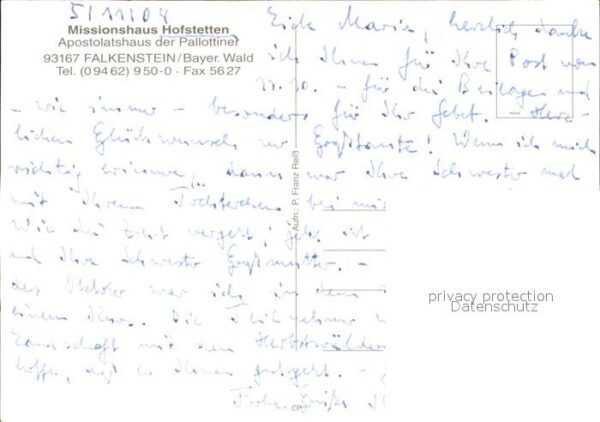 5/11/04
Missionshaus Hofstetten
Apostolatshaus der Pallottiner
93167 FALKENSTEIN/Bayer. Wald
Tel. (0 94 62) 9 50-0 · Fax 56 27
Maria, herzlich danke
ich Ihnen für Ihre Post vom
für die Beilagen und
- wie immer - besonders für Ihr Gebet. - Herz-
lichen Glückwunsch zur Großtante! Wenn ich mich
richtig erinnere, dann war Ihre Schwester mal
mit Ihrem Töchterchen bei mir
Wie die Zeit vergeht; jetzt ist
und Ihre Schwester Großmutter. -
des Oktober war ich in dem
einem Kurs. Die Teilnehmer
Landschaft mit den Herbstwäldern
hoffe, daß es Ihnen gut geht. -
Frohe Grüße
Aufn.: P. Franz Reiß
CP
privacy protection
Datenschutz